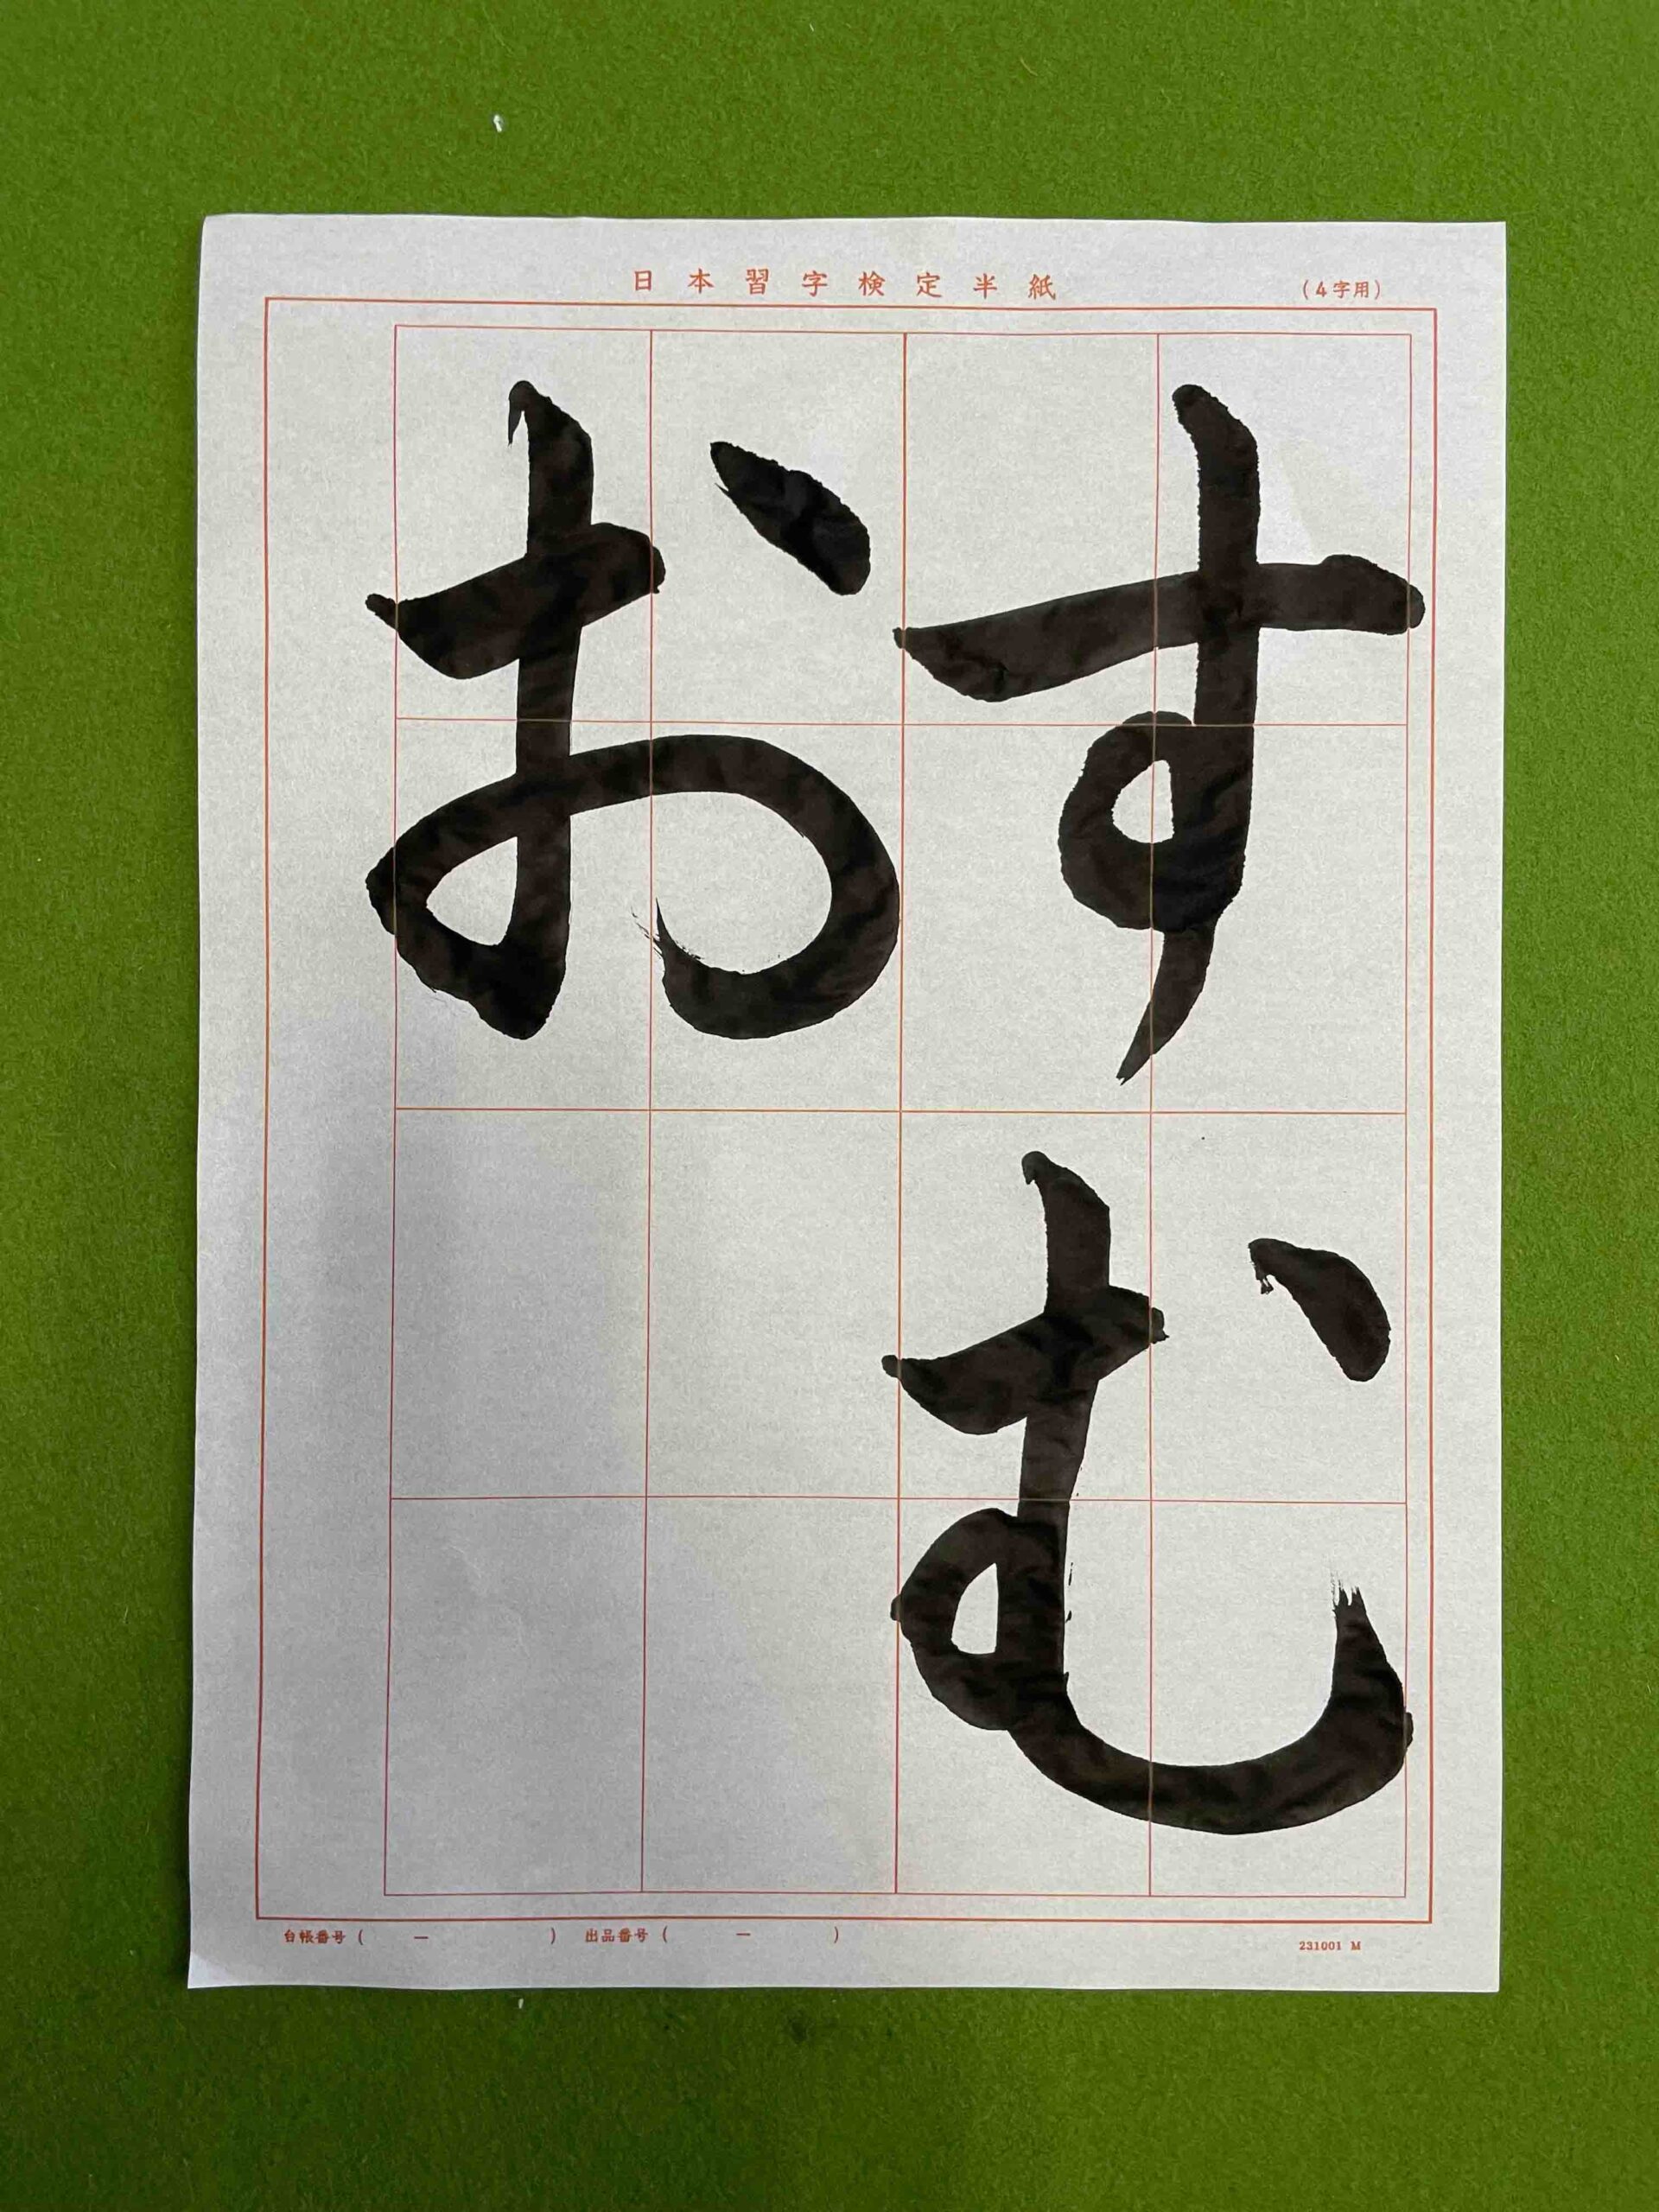 日本習字検定半紙
(4字用)
すむ
お
台帳番号 ( ー )
出品番号 ( ー )
231001 M